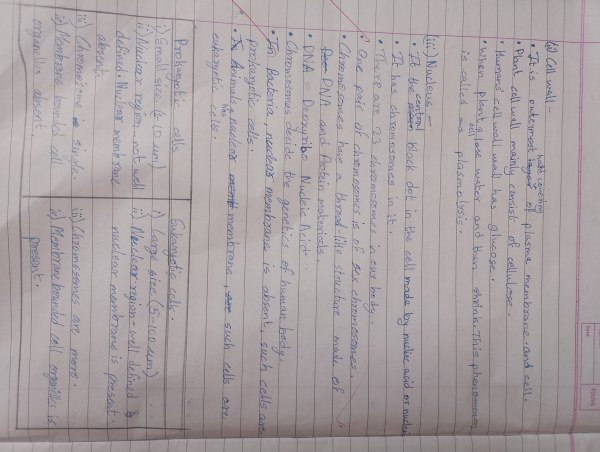 (ii) Cell wall -
hard covering
• It is outermost layer of plasma membrane and cell.
• Plant cell wall mainly consist of cellulose.
• Humans cell wall has glucose.
• When plants cell lose water and then shrink. This phenomenon
is called as plasmolysis.
(iii) Nucleus -
• It the central black dot in the cell made by nucleic acid or nuclei
• It has chromosomes in it.
• There are 23 chromosomes in our body.
• One pair of chromosomes is of sex chromosomes.
• Chromosomes have a thread-like structure made of
DNA and Protein materials.
• DNA = Deoxyribo Nucleic Acid.
• Chromosomes decide the genetics of human body.
• In Bacteria, nuclear membrane is absent, such cells are
prokaryotic cells.
• In Animals, nucleus has membrane, such cells are
eukaryotic cells.
Prokaryotic cells
i) Small size (1-10 μm)
ii) Nuclear region not well
defined. Nuclear membrane
absent.
iii) Chromosome is single.
iv) Membrane bounded cell
organelles absent.
Eukaryotic cells.
i) Large size (5-100 μm)
ii) Nuclear region = well defined &
nuclear membrane is present.
iii) Chromosomes are more.
iv) Membrane bounded cell organelles is
present.